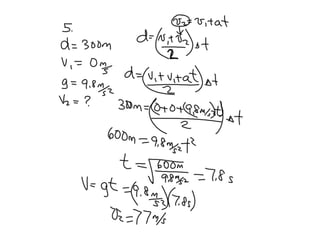 5.
d = 300m
v₁ = 0 m/s
g = 9.8 m/s²
v₂ = ?
v₂ = v₁ + at
d = (v₁ + v₂ / 2) Δt
d = (v₁ + v₁ + at / 2) Δt
300m = (0 + 0 + (9.8 m/s²)t / 2) Δt
600m = 9.8 m/s² t²
t = √(600m / 9.8 m/s²) = 7.8s
V = gt = (9.8 m/s²)(7.8s)
v₂ = 77 m/s